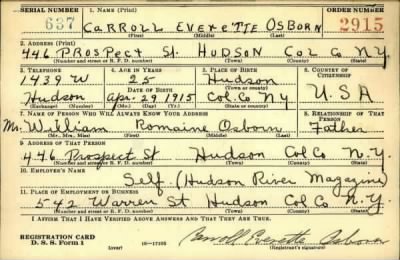 SERIAL NUMBER 1. NAME (Print) ORDER NUMBER
637 CARROLL EVERETTE OSBORN 2915
2. ADDRESS (Print)
446 PROSPECT St. HUDSON COL Co N.Y.
3. TELEPHONE 4. AGE IN YEARS 5. PLACE OF BIRTH 6. COUNTRY OF CITIZENSHIP
1439 W 25 Hudson
DATE OF BIRTH (Town or county)
Hudson Apr. 29 1915 Col. Co N Y U.S.A
(Exchange) (Number) (Mo.) (Day) (Yr.) (State or country)
7. NAME OF PERSON WHO WILL ALWAYS KNOW YOUR ADDRESS 8. RELATIONSHIP OF THAT PERSON
Mr. William Romaine Osborn Father
(Mr., Mrs., Miss) (First) (Middle) (Last)
9. ADDRESS OF THAT PERSON
446 Prospect St Hudson Col Co N.Y.
(Number and street or R. F. D. number) (Town) (County) (State)
10. EMPLOYER'S NAME
Self. (Hudson River Magazine)
11. PLACE OF EMPLOYMENT OR BUSINESS
542 Warren St Hudson Col Co N.Y.
(Number and street or R. F. D. number) (Town) (County) (State)
I AFFIRM THAT I HAVE VERIFIED ABOVE ANSWERS AND THAT THEY ARE TRUE.
REGISTRATION CARD
D. S. S. Form 1 (over) 16—17105 Carroll Everette Osborn
(Registrant's signature)